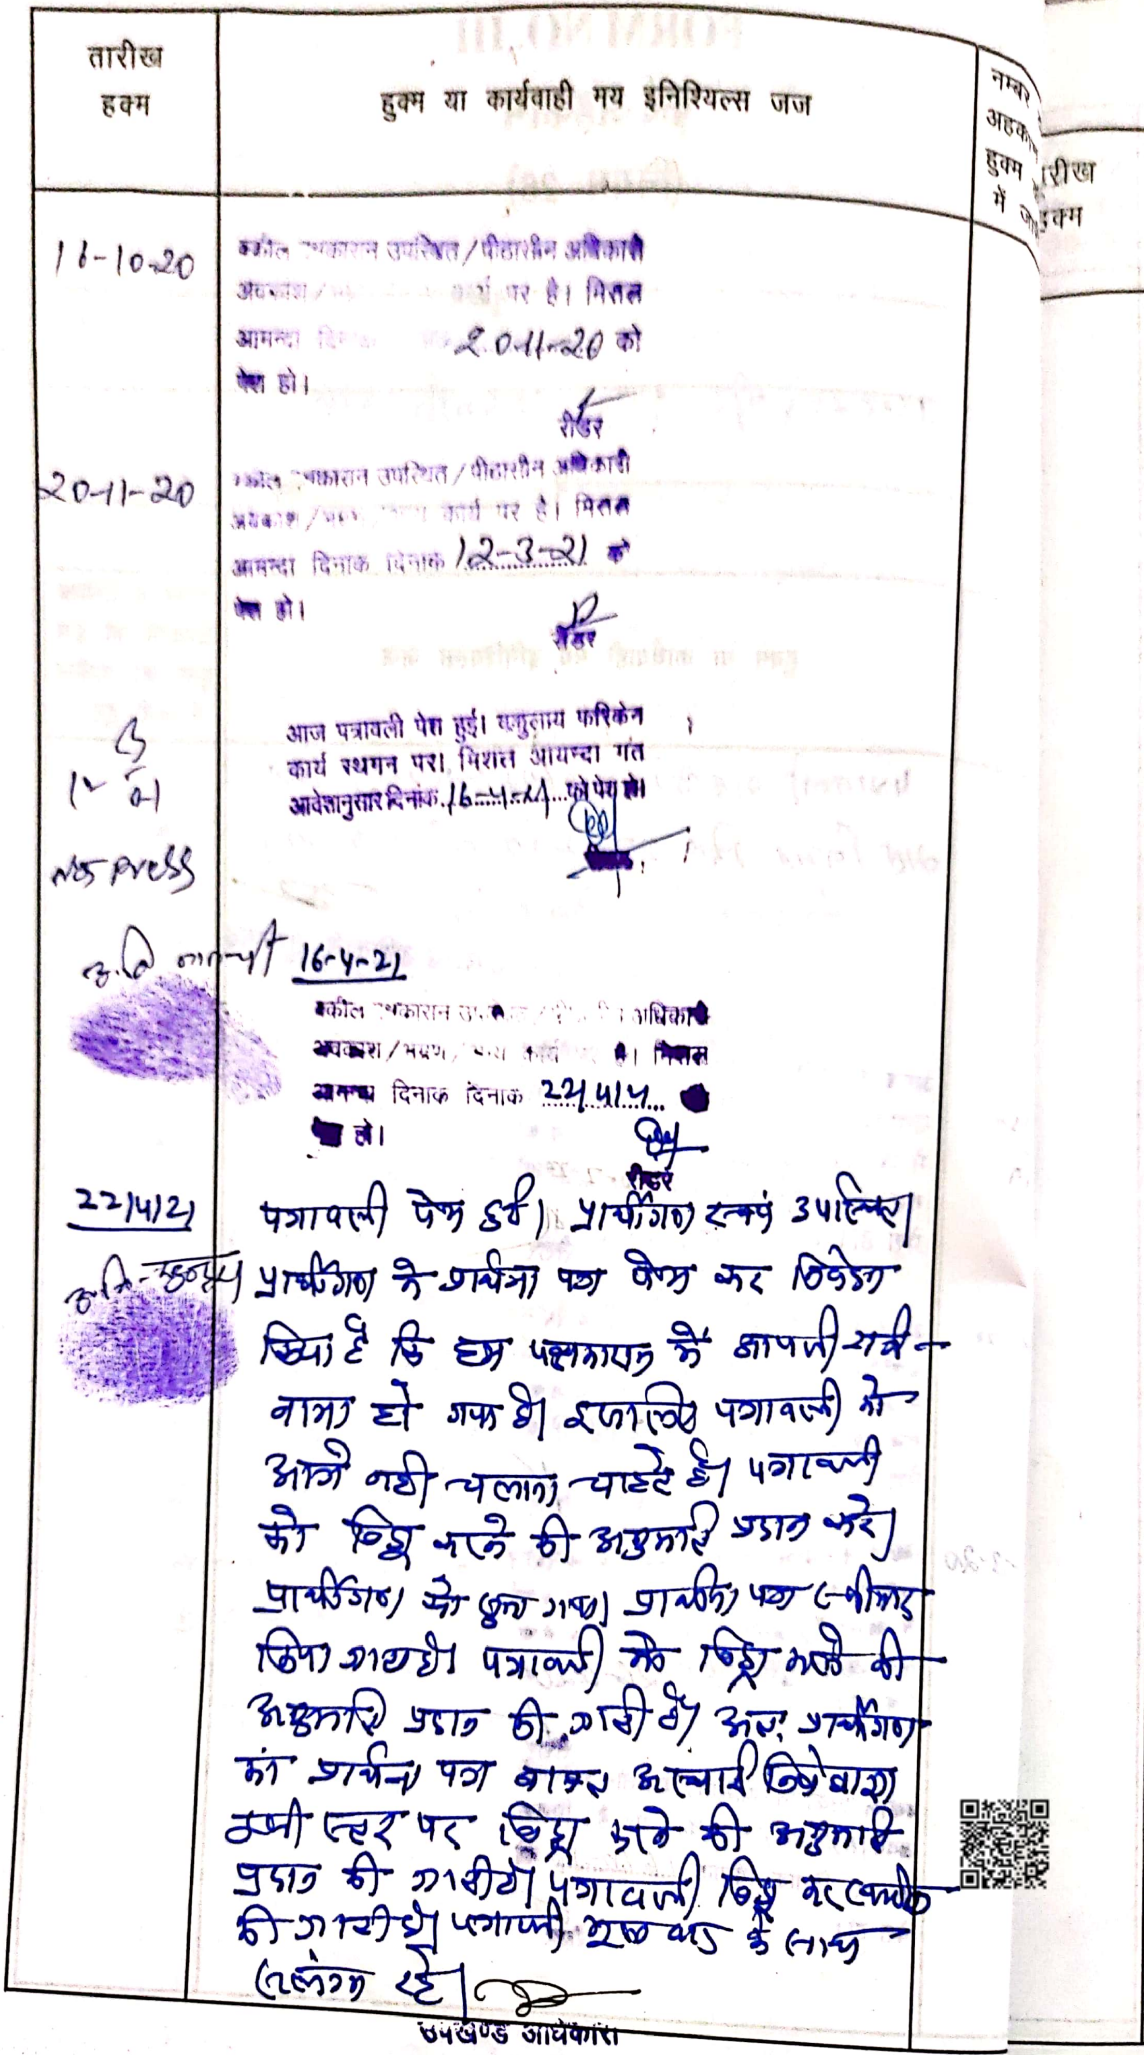 तारीख
हक्म
हुक्म या कार्यवाही मय इनिशियल्स जज
नम्बर
अहका
हुक्म
में
रीख
हक्म
16-10-20
वकील उपस्थित/पीठासीन अधिकारी
अवकाश/ कार्य पर है। मिसल
आमन्दा 20-11-20 को
पेश हो।
रीडर
20-11-20
उपस्थित/पीठासीन अधिकारी
अवकाश/ कार्य पर है। मिसल
आमन्दा दिनाक दिनाक 12-3-21 को
पेश हो।
रीडर
आज पत्रावली पेश हुई। फरिकेन
कार्य स्थगन पर। मिशल आयन्दा गत
आदेशानुसार दिनांक 16-4-21 को पेश हो।
Not press
16-4-21
वकील अधिकारी
अवकाश/भ्रमण/ कार्य है। मिसल
दिनाक दिनाक 22/4/21
हो।
रीडर
22/4/21
पत्रावली पेश हुई। प्रार्थीगण स्वयं उपस्थित।
प्रार्थीगण ने प्रार्थना पत्र पेश कर निवेदन
किया है कि हम पक्षकारान में आपसी राजी-
नामा हो गया है। इसलिए पत्रावली को
आगे नही चलाना चाहते है। पत्रावली
को विड्रा करने की अनुमति प्रदान करे।
प्रार्थीगण को सुना गया। प्रार्थना पत्र स्वीकार
किया जाता है। पत्रावली को विड्रा करने की
अनुमति प्रदान की जाती है। अतः प्रार्थीगण
का प्रार्थना पत्र बाबत अस्थाई निषेधाज्ञा
इसी स्टर पर विड्रा करने की अनुमति
प्रदान की जाती है। पत्रावली विड्रा कर
की जाती है। पत्रावली मूल वाद के साथ
संलग्न रहे।
उपखण्ड अधिकारी